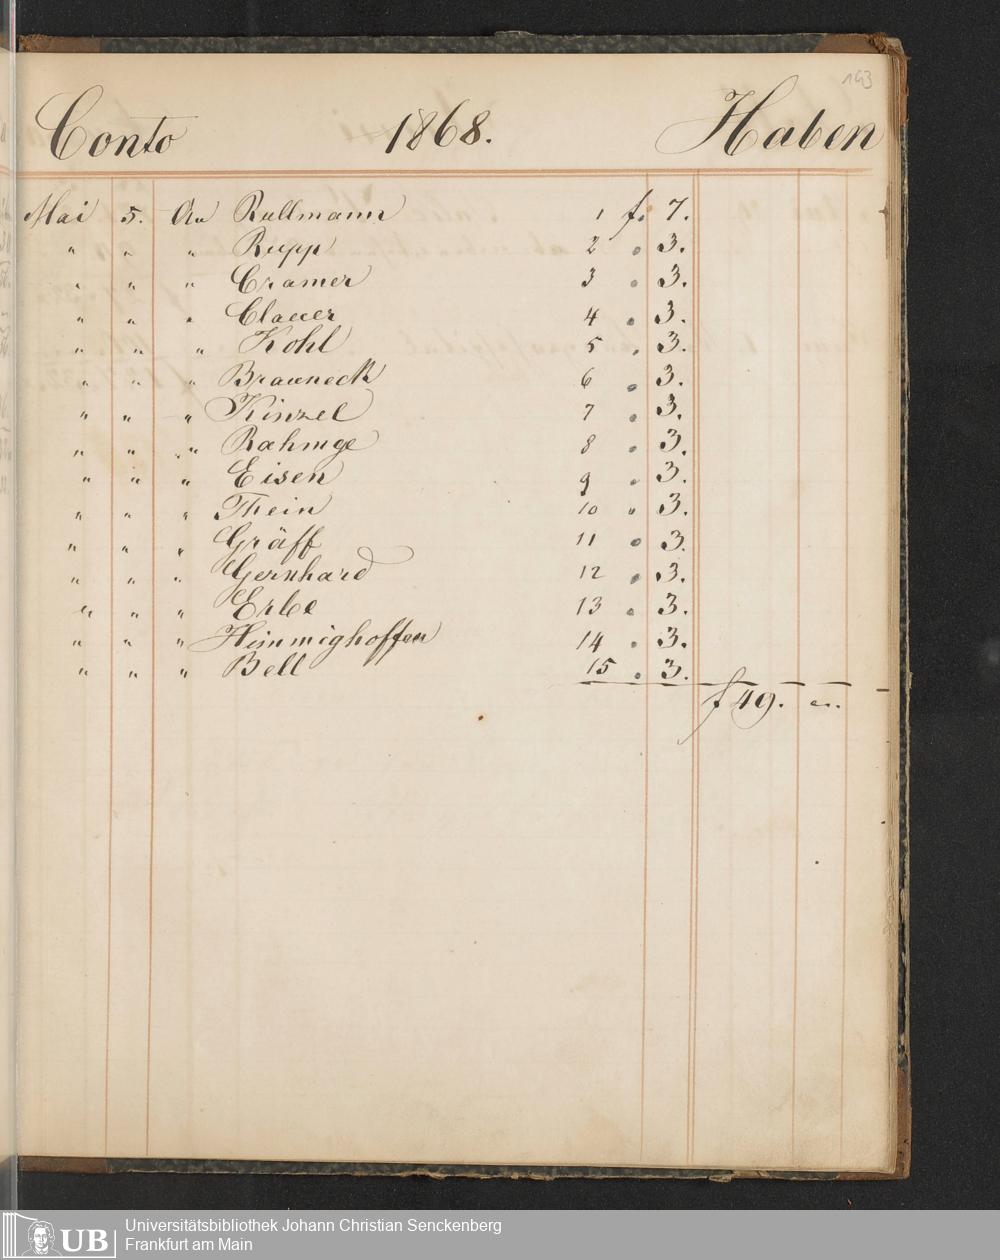 193
Conto 1868. Haben
Mai 5. An Rullmann 1 f. 7.
" " " Rupp 2 " 3.
" " " Cramer 3 " 3.
" " " Clauer 4 " 3.
" " " Kohl 5 " 3.
" " " Brauneck 6 " 3.
" " " Kinzel 7 " 3.
" " " 8 " 3.
" " " Eisen 9 " 3.
" " " Thein 10 " 3.
" " " Gräff 11 " 3.
" " " Gernhard 12 " 3.
" " " Erbe 13 " 3.
" " " Himmighoffen 14 " 3.
" " " Bell 15 " 3.
f 49. "
UB
Universitätsbibliothek Johann Christian Senckenberg
Frankfurt am Main